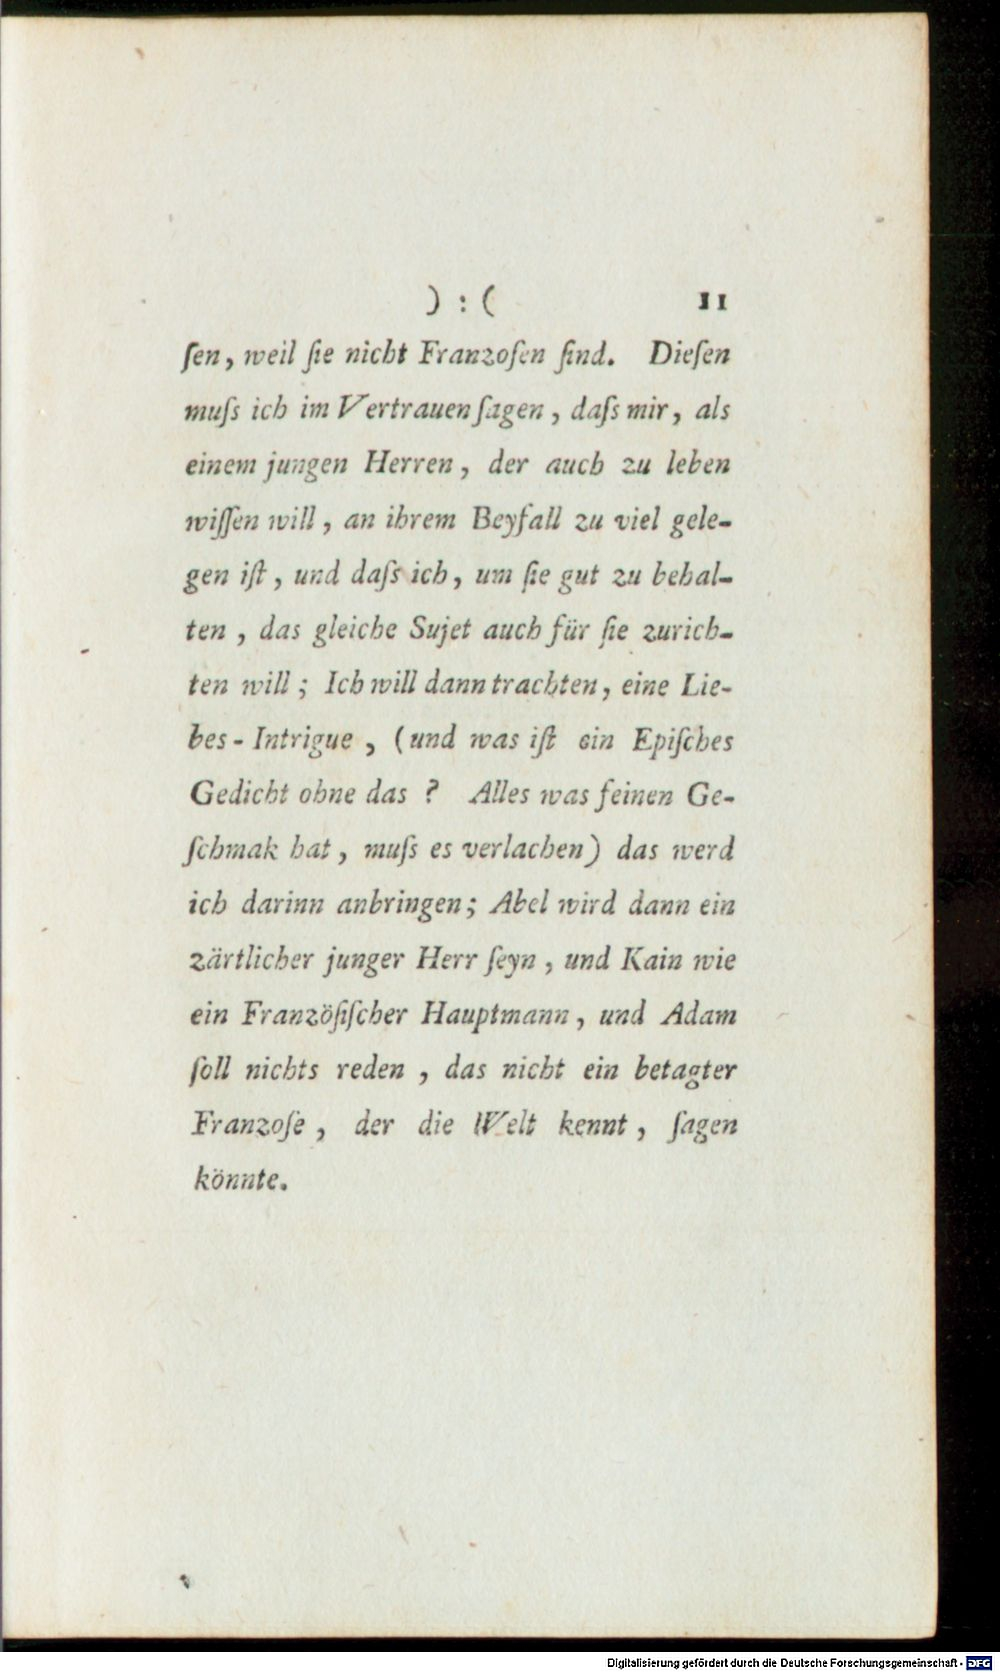 ) : ( 11
ſen, weil ſie nicht Franzoſen ſind. Dieſen
muſs ich im Vertrauen ſagen, daſs mir, als
einem jungen Herren, der auch zu leben
wiſſen will, an ihrem Beyfall zu viel gele-
gen iſt, und daſs ich, um ſie gut zu behal-
ten, das gleiche Sujet auch für ſie zurich-
ten will; Ich will dann trachten, eine Lie-
bes-Intrigue, (und was iſt ein Epiſches
Gedicht ohne das? Alles was feinen Ge-
ſchmak hat, muſs es verlachen) das werd
ich darinn anbringen; Abel wird dann ein
zärtlicher junger Herr ſeyn, und Kain wie
ein Franzöſiſcher Hauptmann, und Adam
ſoll nichts reden, das nicht ein betagter
Franzoſe, der die Welt kennt, ſagen
könnte.
Digitalisierung gefördert durch die Deutsche Forschungsgemeinschaft - DFG